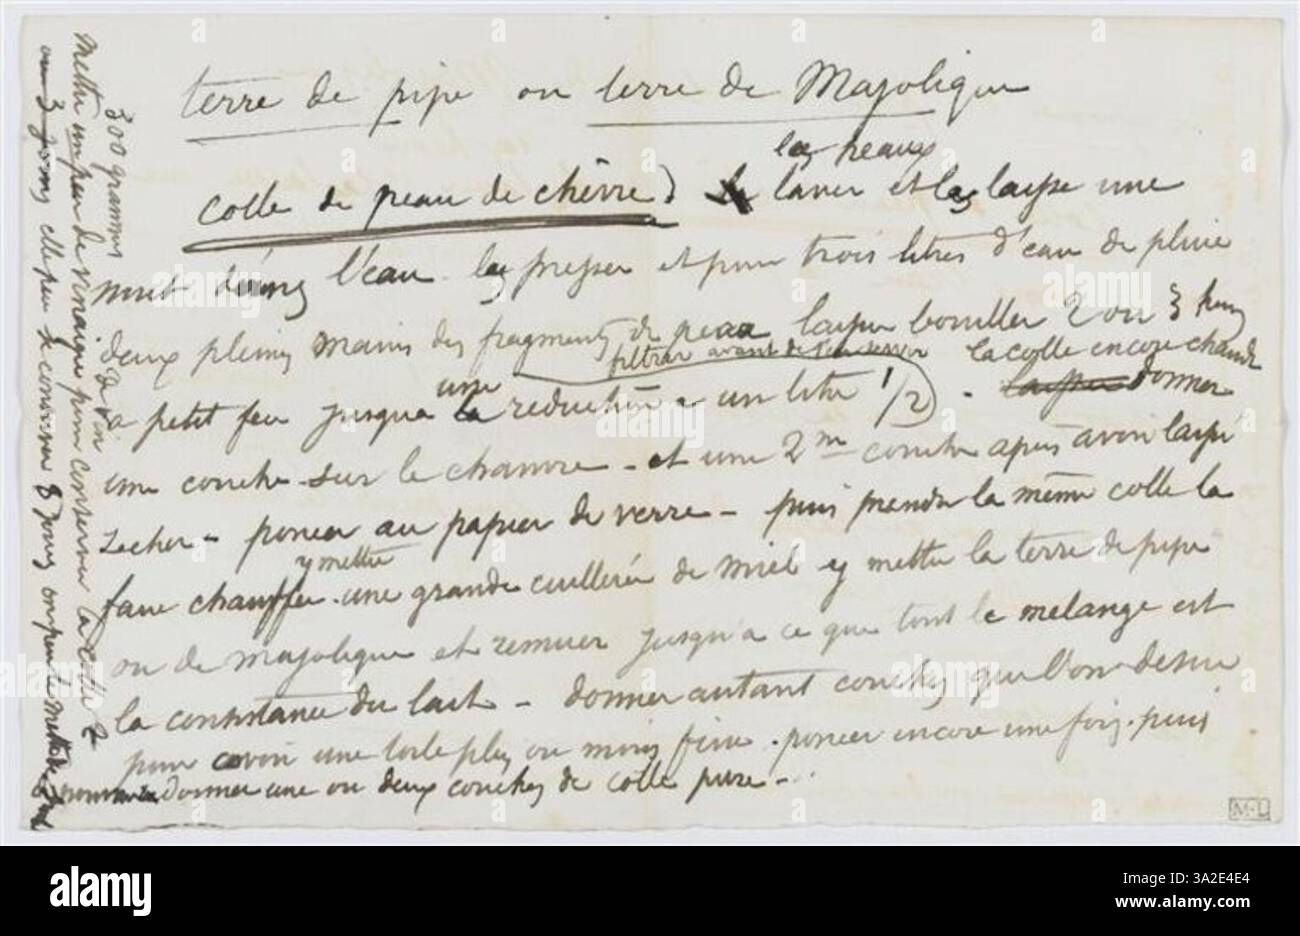 terre de pipe ou terre de Majolique
les peaux
colle de peau de chèvre) laver et les laisse une
nuit dans l'eau les presser et pour trois litres d'eau de pluie
deux pleines mains des fragments de peau laisser bouillir 2 ou 3 heures
filtrer avant de s'en servir la colle encore chaude
a petit feu jusqua une reduction a un litre 1/2) - laisser donner
une couche sur le chanvre - et une 2me couche apres avoir laissé
secher - poncer au papier de verre - puis prendre la même colle la
y mettre
faire chauffer une grande cuillerée de miel y mettre la terre de pipe
ou de majolique et remuer jusqu'a ce que tout le melange est
la consistance du lait - donner autant couches que l'on desire
pour avoir une toile plus ou moins fine. poncer encore une fois. puis
donner une ou deux couches de colle pure -
300 grammes
Mettre un peu de vinaigre pour conserver la colle 2
3 jours elle peu se conserver 8 jours
alamy
Image ID: 3A2E4E4
www.alamy.com
M-L